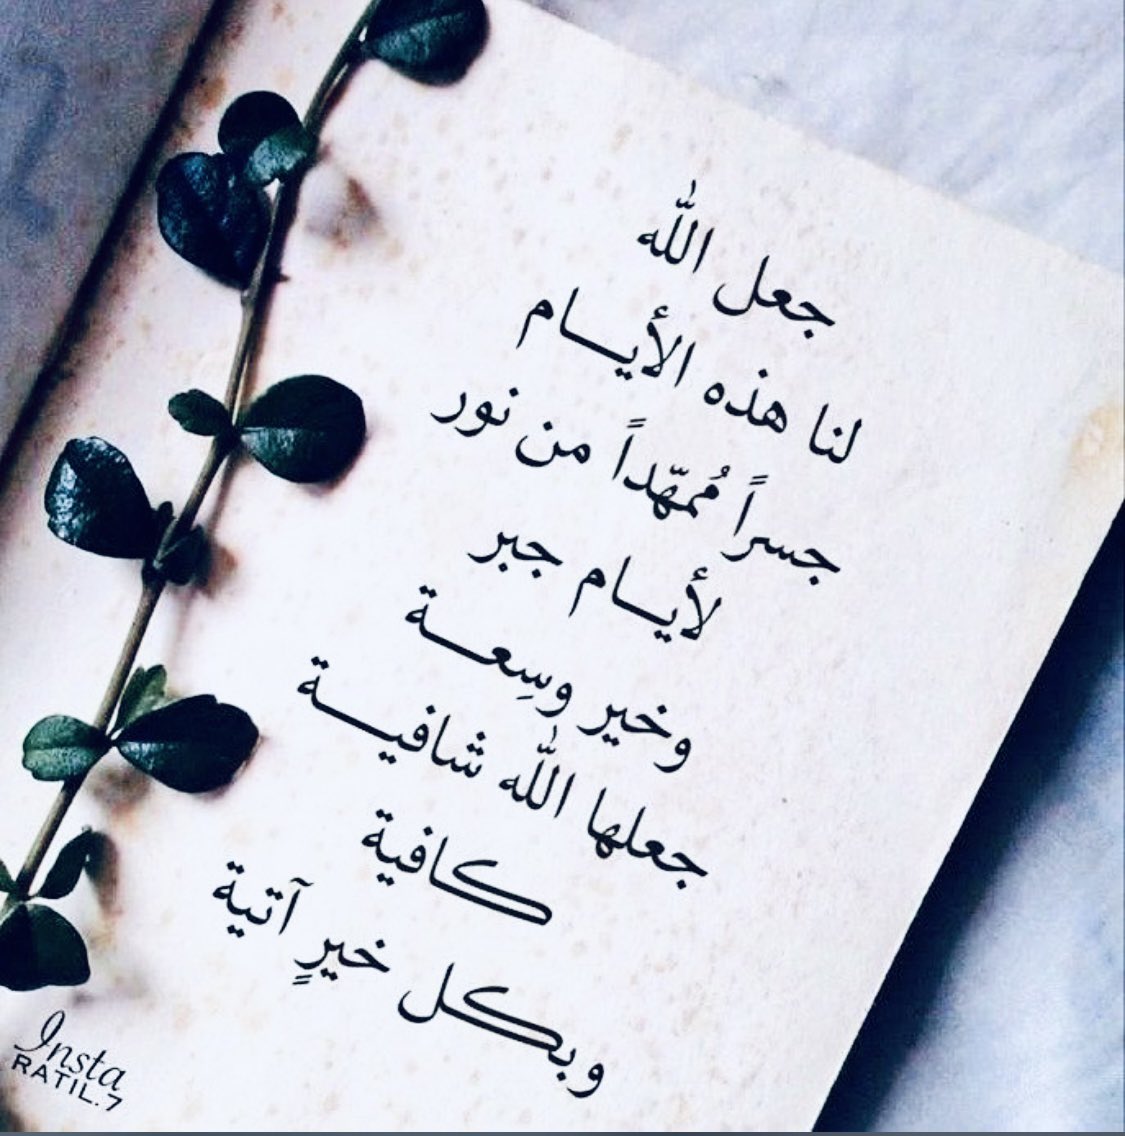 جعل الله
لنا هذه الأيـــام
جسراً مُمهّداً من نور
لأيـــام جبر
وخير وسِعـــة
جعلها الله شافيـــة
كافية
وبكل خيرٍ آتية
Insta
RATIL.7